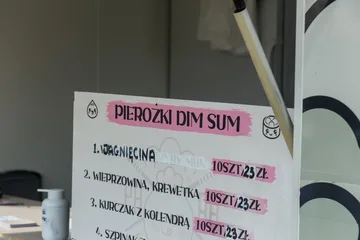 PIEROŻKI DIM SUM
1. JAGNIĘCINA 10SZT/23ZŁ
2. WIEPRZOWINA, KREWETKA 10SZT/23ZŁ
3. KURCZAK Z KOLENDRĄ 10SZT/23ZŁ
4. SZPINAK